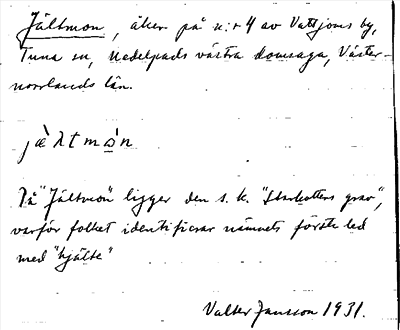 Jältmon, åker på n:r 4 av Vattjoms by,
Tuna sn, Medelpads västra domsaga, Väster-
norrlands län.
jæ̀ltmòn
På "Jältmon" ligger den s. k. "Starkotters grav",
varför folket identifierar namnets förste led
med "hjälte"
Valter Jansson 1931.